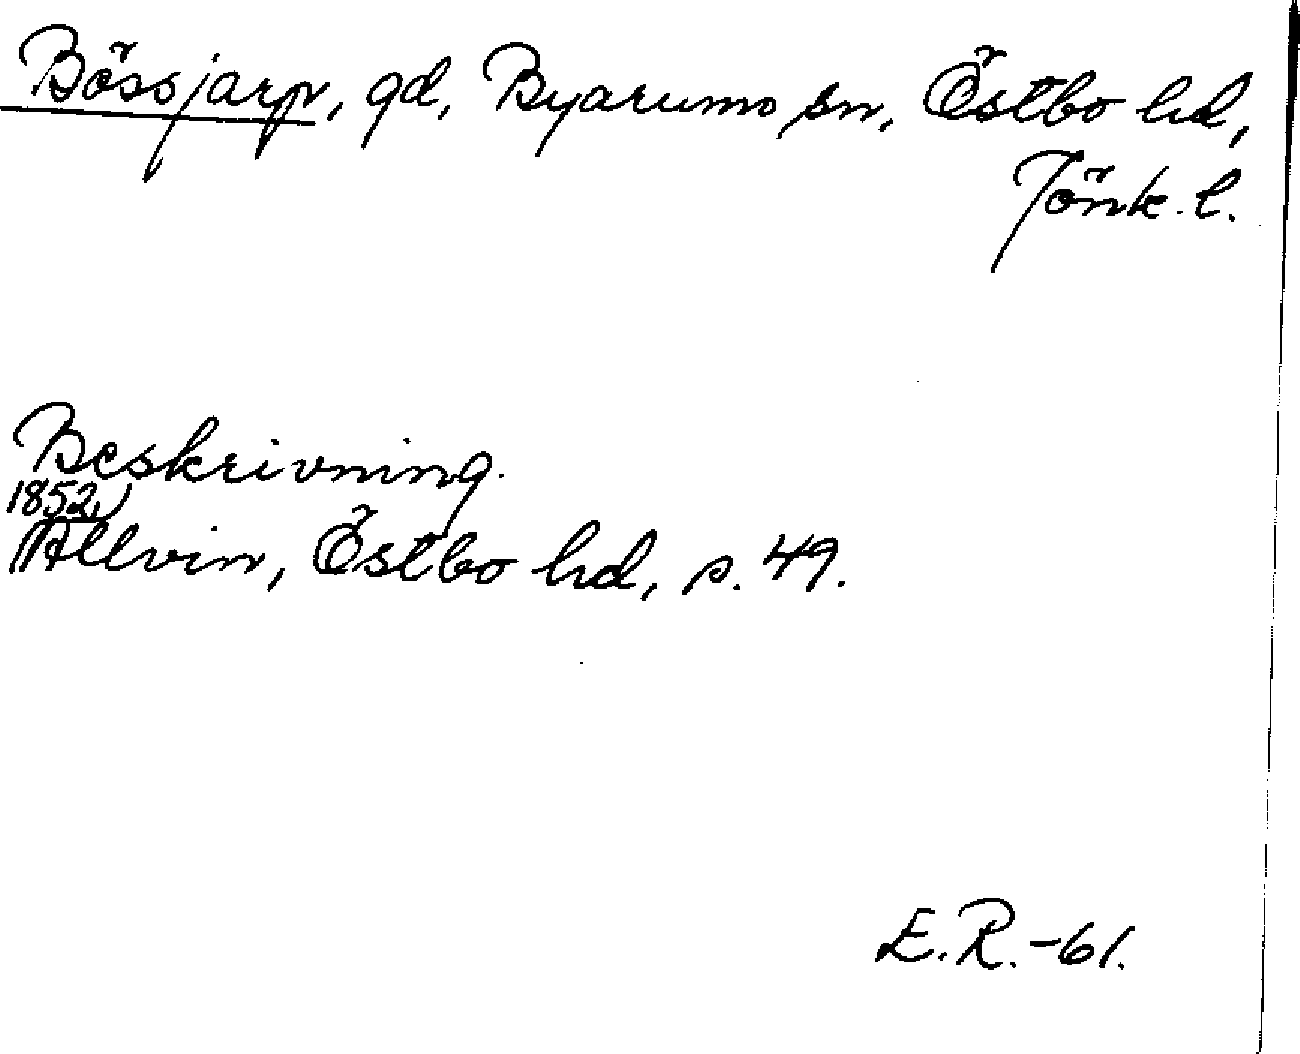 Bössjarp, gd, Byarums sn, Östbo hd,
Jönk. l.
Beskrivning.
1852,
Allvin, Östbo hd, s. 49.
E.R.-61.